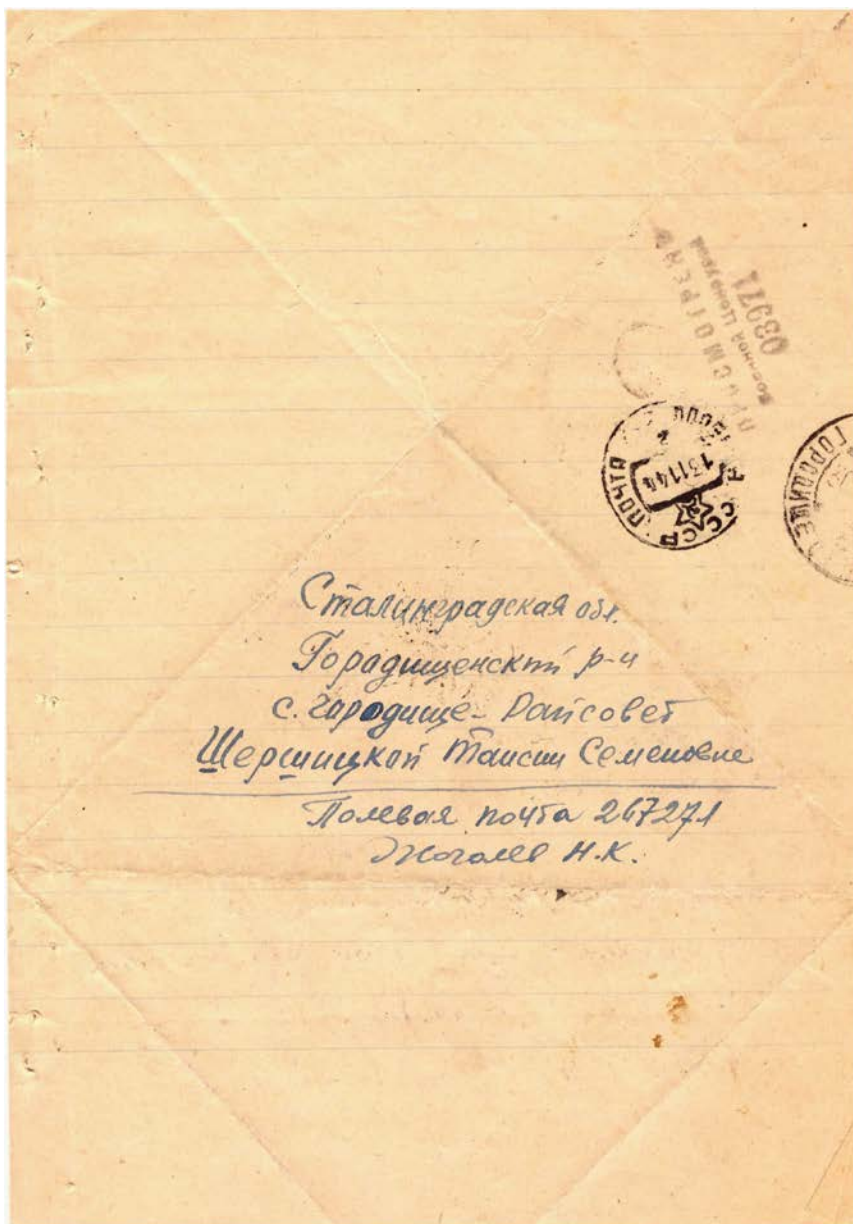 ПРОСМОТРЕНО
Военной Цензурой
03971
ПОЧТА
131144
СССР
ГОРОДИЩЕ
Сталинградская обл.
Горадищенский р-н
с. гародище - Райсовет
Шершицкой Таисии Семеновне
Полевая почта 267271
Жоголев Н.К.